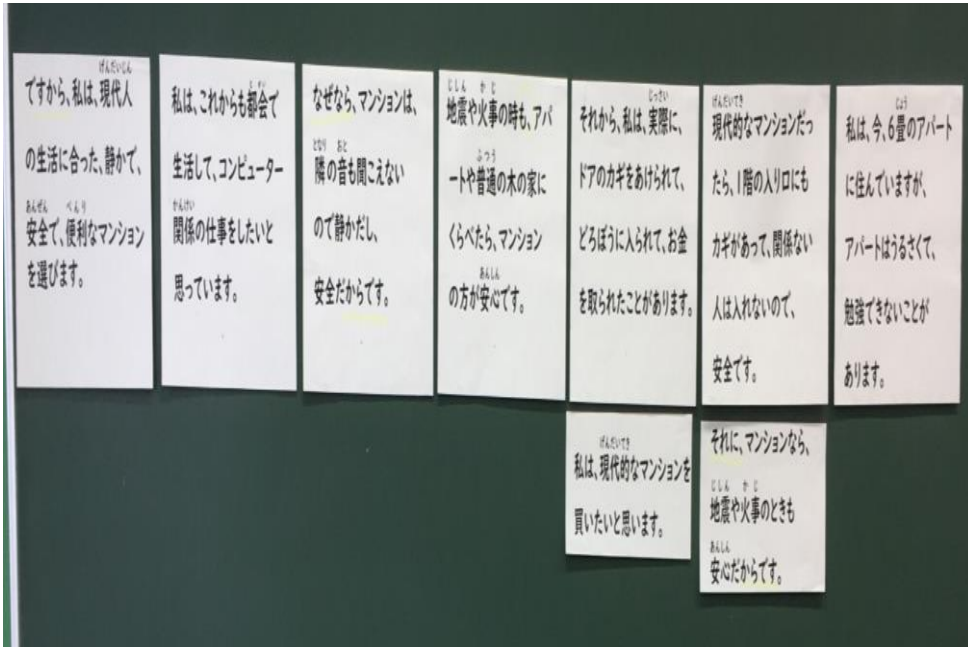 ですから、私は、現代人
の生活に合った、静かで、
安全で、便利なマンション
を選びます。
私は、これからも都会で
生活して、コンピューター
関係の仕事をしたいと
思っています。
なぜなら、マンションは、
隣の音も聞こえない
ので静かだし、
安全だからです。
地震や火事の時も、アパ
ートや普通の木の家に
くらべたら、マンション
の方が安心です。
それから、私は、実際に、
ドアのカギをあけられて、
どろぼうに入られて、お金
を取られたことがあります。
現代的なマンションだっ
たら、1階の入り口にも
カギがあって、関係ない
人は入れないので、
安全です。
私は、今、6畳のアパート
に住んでいますが、
アパートはうるさくて、
勉強できないことが
あります。
私は、現代的なマンションを
買いたいと思います。
それに、マンションなら、
地震や火事のときも
安心だからです。